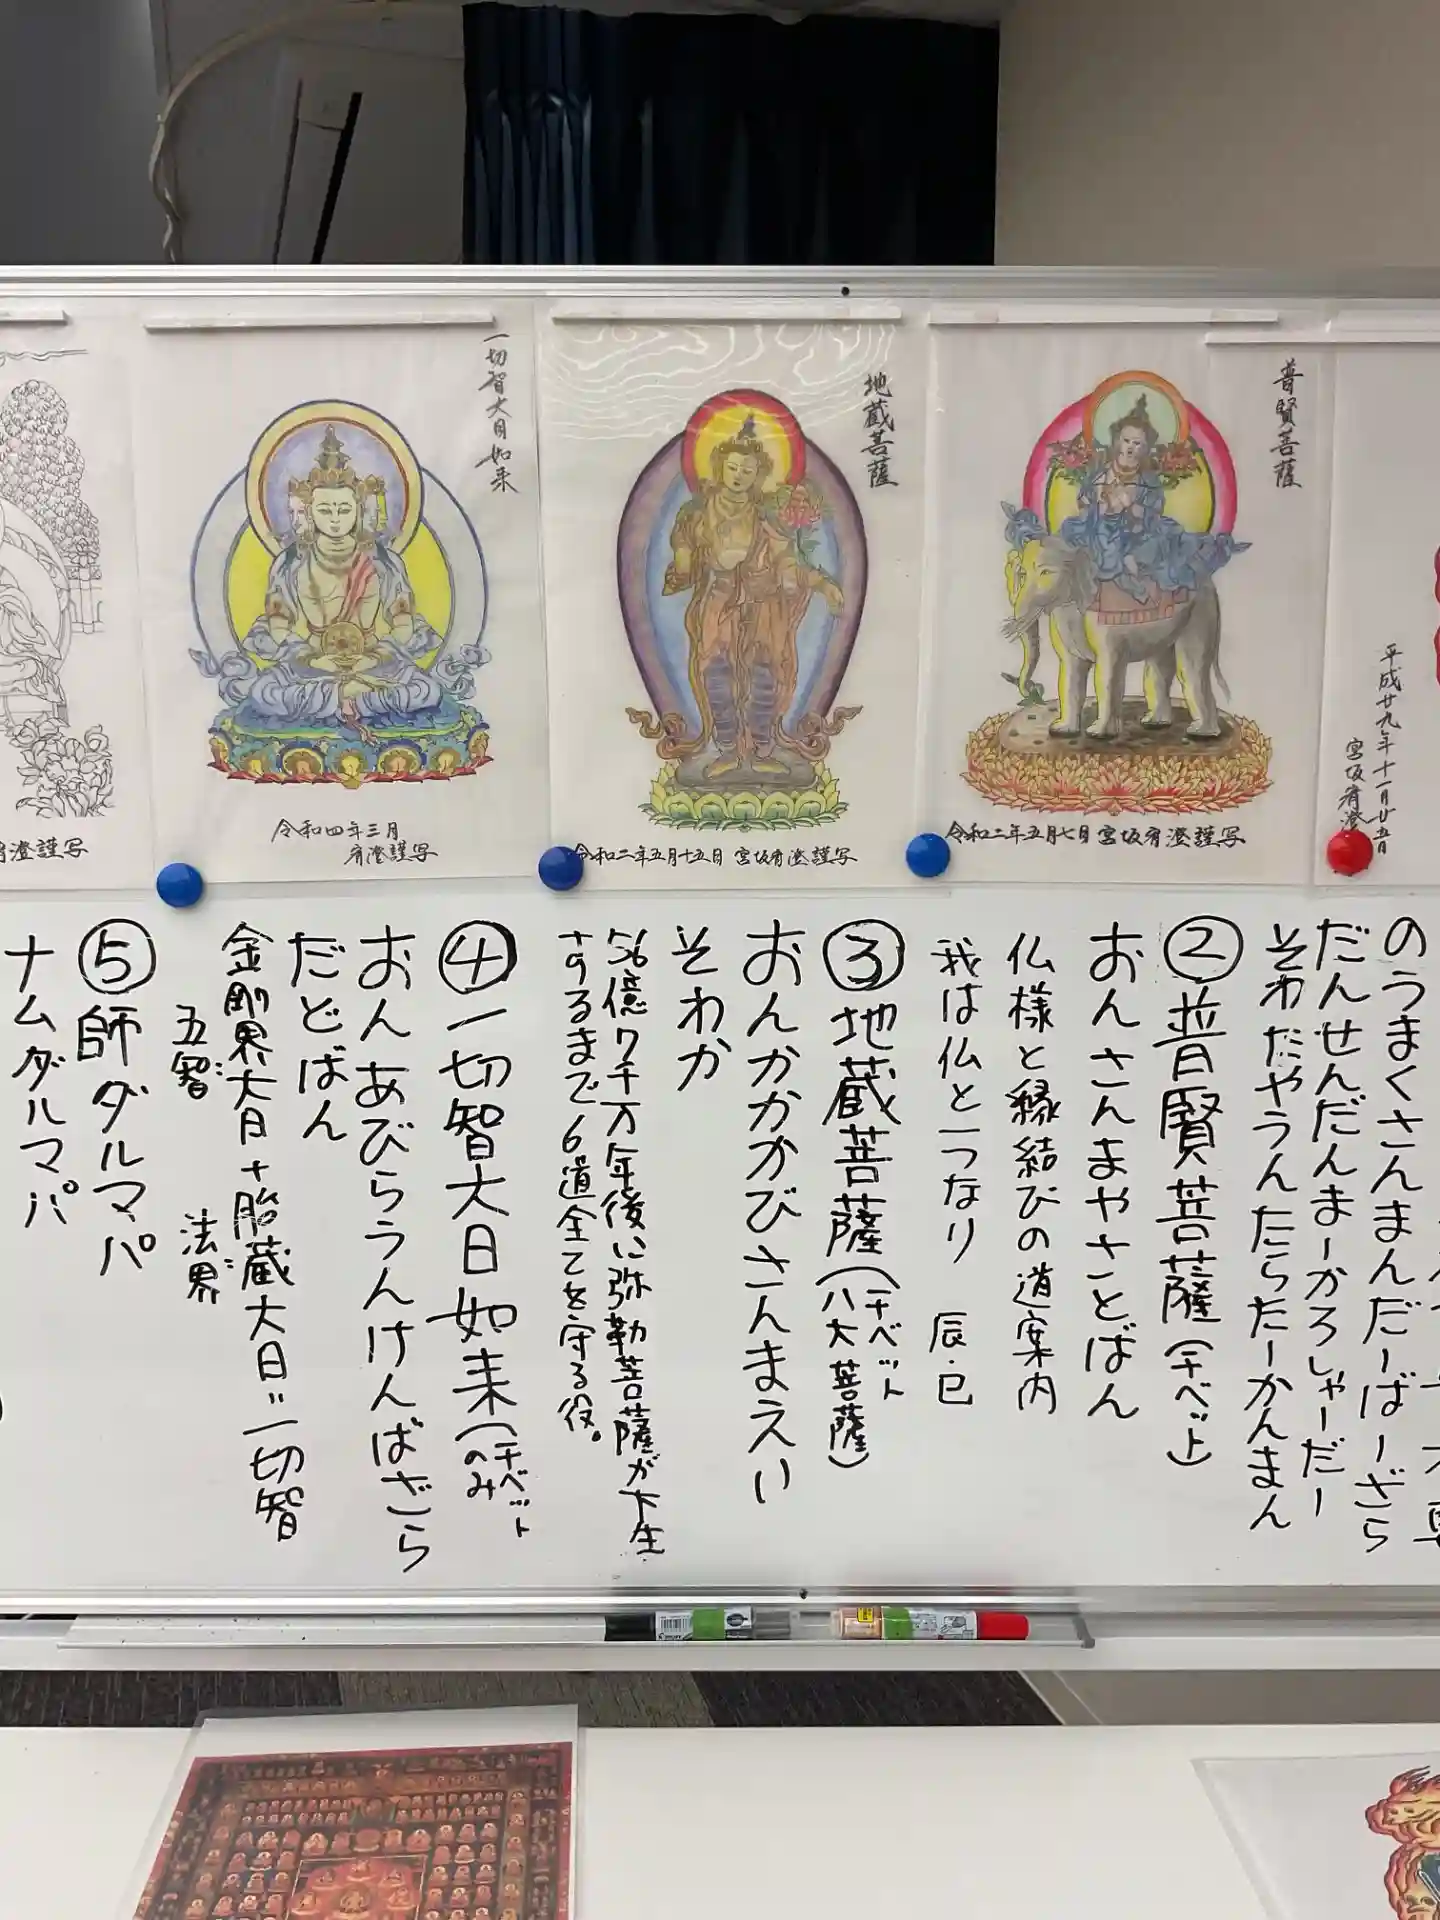 一切智大日如来
令和四年三月
宥澄謹写
地蔵菩薩
令和二年五月十五日 宮坂宥澄謹写
普賢菩薩
令和二年五月七日 宮坂宥澄謹写
平成廿九年十一月廿五日
宮坂宥澄
宥澄謹写
のうまくさんまんだーばーざら
だんせんだんまーかろしゃーだー
そわたやうんたらたーかんまん
②普賢菩薩(チベット)
おんさんまやさとばん
仏様と縁結びの道案内
我は仏と一つなり 辰・巳
③地蔵菩薩(チベット八大菩薩)
おんかかかびさんまえい
そわか
56億7千万年後に弥勒菩薩が下生
するまで6道全てを守る役。
④一切智大日如来(チベットのみ
おんあびらうんけんばざら
だどばん
金剛界大日+胎蔵大日=一切智
五智 法界
⑤師ダルマパ
ナムダルマパ